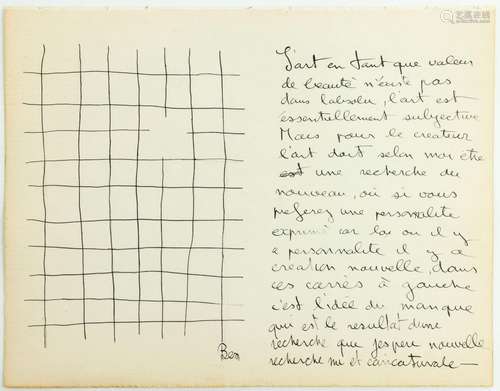 L'art en tant que valeur
de beauté n'existe pas
dans l'absolu, l'art est
essentiellement subjective
Mais pour le createur
l'art doit selon moi être
est une recherche du
nouveau, ou si vous
preferez une personalité
exprimé car la ou il y
a personnalité il y a
creation nouvelle, dans
ces carrès à gauche
c'est l'idée du manque
qui est le resultat d'une
recherche que j'espere nouvelle
recherche et caricaturale —
Ben